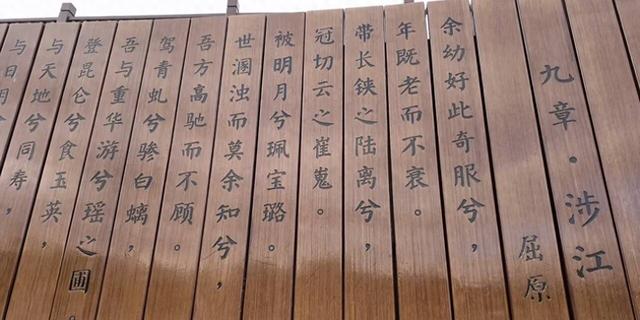 九章·涉江
屈原
余幼好此奇服兮，
年既老而不衰。
带长铗之陆离兮，
冠切云之崔嵬。
被明月兮珮宝璐。
世溷浊而莫余知兮，
吾方高驰而不顾。
驾青虬兮骖白螭，
吾与重华游兮瑶之圃。
登昆仑兮食玉英，
与天地兮同寿，
与日月兮